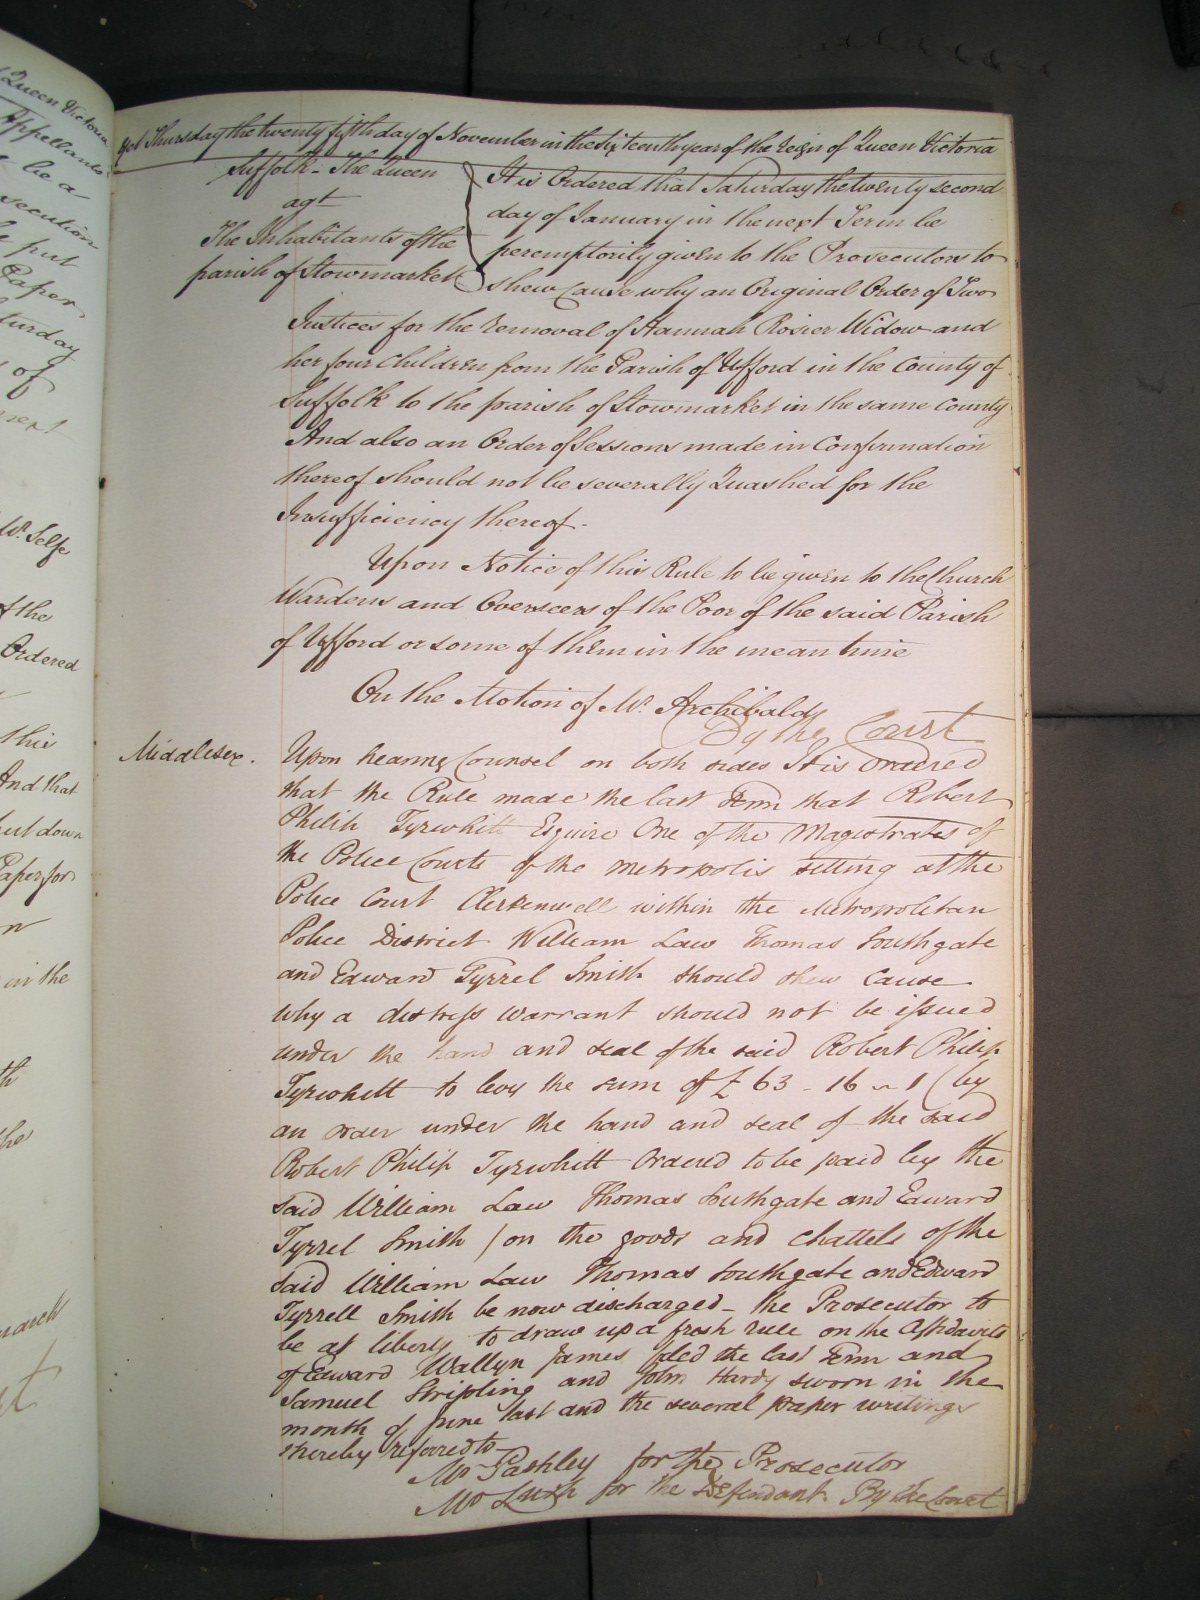 Yet Thursday the twenty fifth day of November in the Sixteenth year of the reign of Queen Victoria
Suffolk - The Queen
agt
The Inhabitants of the
parish of Stowmarket
It is Ordered that Saturday the twenty second
day of January in the next Term be
peremptorily given to the Prosecutors to
shew Cause why an Original Order of Two
Justices for the removal of Hannah Rosier Widow and
her four Children from the Parish of Ufford in the County of
Suffolk to the parish of Stowmarket in the same County
And also an Order of Sessions made in Confirmation
thereof should not be severally Quashed for the
Insufficiency thereof -
Upon Notice of this Rule to be given to the Church
Wardens and Overseers of the Poor of the said Parish
of Ufford or some of them in the mean time
On the Motion of Mr. Archibald
By the Court
Middlesex.
Upon hearing Counsel on both sides It is Ordered
that the Rule made the last Term that Robert
Philip Tyrwhitt Esquire One of the Magistrates of
the Police Courts of the Metropolis sitting at the
Police Court Clerkenwell within the Metropolitan
Police District William Law Thomas Southgate
and Edward Tyrrel Smith should shew Cause
why a distress warrant should not be issued
under the hand and seal of the said Robert Philip
Tyrwhitt to levy the sum of £63 - 16 - 1 (by
an order under the hand and seal of the said
Robert Philip Tyrwhitt Ordered to be paid by the
said William Law Thomas Southgate and Edward
Tyrrel Smith) on the goods and chattels of the
said William Law Thomas Southgate and Edward
Tyrrell Smith be now discharged - the Prosecutor to
be at liberty to draw up a fresh rule on the Affidavits
of Edward Wallyn James filed the last Term and
Samuel Stripling and John Hardy sworn in the
month of June last and the several paper writings
thereby referred to
Mr Pashley for the Prosecutor
Mr Lush for the Defendant. By the Court
Queen Victoria
Appellants
be a
put
Paper
of
next
Mr. Selfe
of the
Ordered
this
And that
put down
Paper for
in the
the